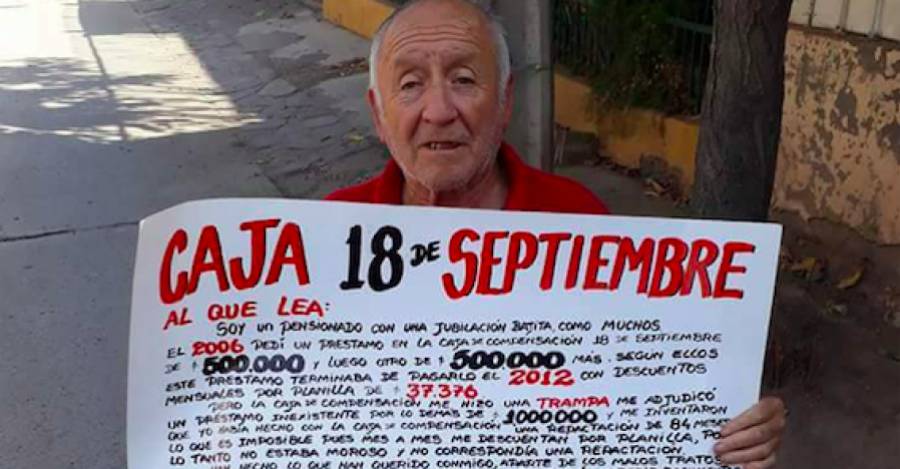 CAJA 18 DE SEPTIEMBRE
AL QUE LEA:
SOY UN PENSIONADO CON UNA JUBILACIÓN BAJITA, COMO MUCHOS
EL 2006 PEDÍ UN PRESTAMO EN LA CAJA DE COMPENSACIÓN 18 DE SEPTIEMBRE
DE $500.000 Y LUEGO OTRO DE $500.000 MÁS. SEGÚN ELLOS
ESTE PRÉSTAMO TERMINABA DE PAGARLO EL 2012 CON DESCUENTOS
MENSUALES POR PLANILLA DE $37.376
PERO LA CAJA DE COMPENSACIÓN ME HIZO UNA TRAMPA ME ADJUDICÓ
UN PRÉSTAMO INEXISTENTE POR LO DEMÁS DE $1000000 Y ME INVENTARON
QUE YO HABÍA HECHO CON LA CAJA DE COMPENSACIÓN UNA REPACTACIÓN DE 84 MESES
LO QUE ES IMPOSIBLE PUES MES A MES ME DESCUENTAN POR PLANILLA, PO
LO TANTO NO ESTABA MOROSO Y NO CORRESPONDÍA UNA REPACTACIÓN.
HAN HECHO LO QUE HAN QUERIDO CONMIGO, APARTE DE LOS MALOS TRATOS